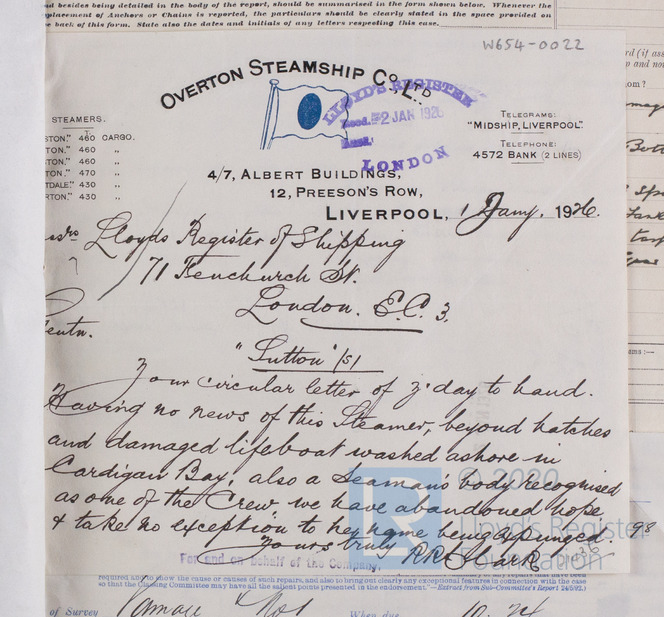 nd besides being detailed in the body of the report, should be summarised in the form shown below. Whenever the
placement of Anchors or Chains is reported, the particulars should be clearly stated in the space provided on
e back of this form. State also the dates and initials of any letters respecting this case.
W654-0022
OVERTON STEAMSHIP CO. LTD.
LLOYD'S REGISTER
Recd. 2 JAN 1926
LONDON
STEAMERS.
STON." 460 CARGO.
TON." 460 "
TON." 460 "
TON." 470 "
TDALE." 430 "
RTON." 430 "
TELEGRAMS:
"MIDSHIP, LIVERPOOL."
TELEPHONE:
4572 BANK (2 LINES)
4/7, ALBERT BUILDINGS,
12, PREESON'S ROW,
LIVERPOOL, 1 Jany. 1926.
Lloyds Register of Shipping
71 Fenchurch St.
London. E.C. 3.
entn.
"Sutton" /S1
Your circular letter of y'day to hand.
Having no news of this Steamer, beyond hatches
and damaged lifeboat washed ashore in
Cardigan Bay, also a Seaman's body recognised
as one of the Crew, we have abandoned hope
& take no exception to her name being expunged.
Yours truly
For and on behalf of the Company,
© 2020
Lloyd's Register
Foundation
required any to show the cause or causes of such repairs, and also to bring out clearly any exceptional features in connection with the case
so that the Classing Committee may have all the salient points presented in the endorsement."—Extract from Sub-Committee's Report 24/5/92.)
of Survey
When due